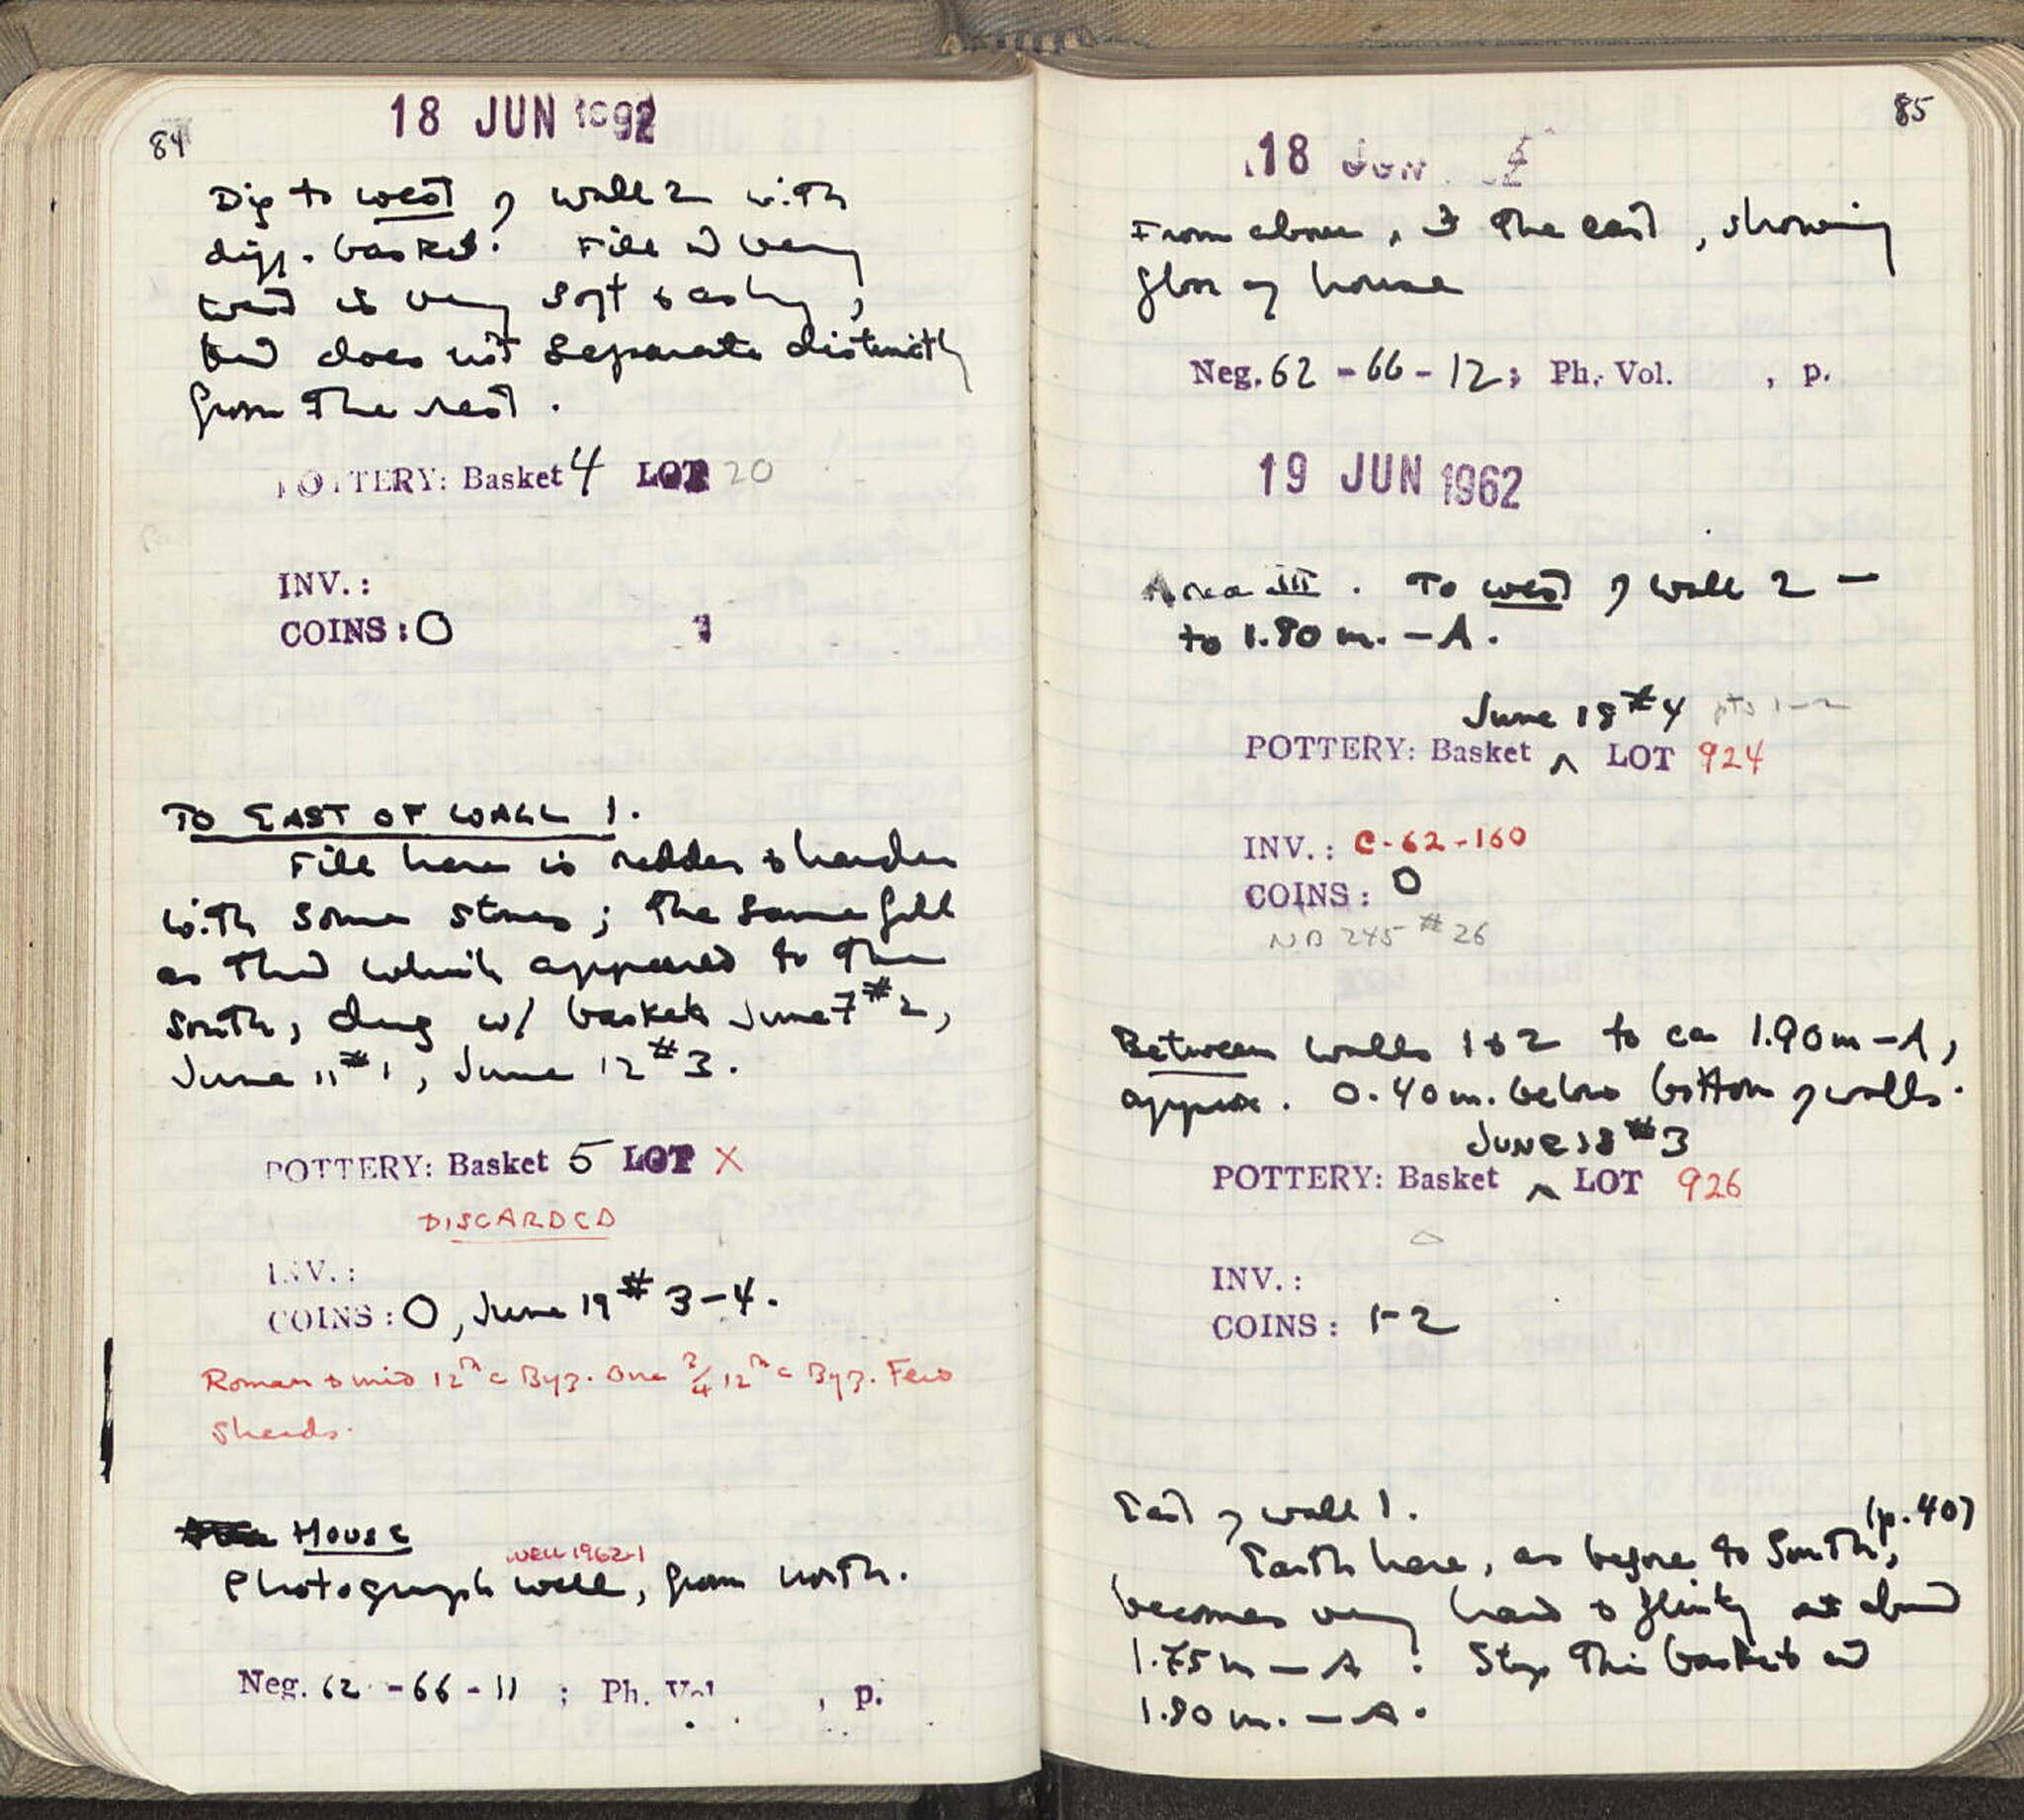 84
18 JUN 1962
Dig to west of wall 2 with
diff. basket. Fill at very
west is very soft & ashy,
but does not separate distinctly
from the rest.
POTTERY: Basket 4 LOT 20
INV.:
COINS: 0
TO EAST OF WALL 1.
Fill here is redder & harder
with some stones; the same fill
as that which appeared to the
south, dug w/ baskets June 7 #2,
June 11 #1, June 12 #3.
POTTERY: Basket 5 LOT X
DISCARDED
INV.:
COINS: 0, June 19 # 3-4.
Roman & mid 12th c Byz. One 3/4 12th c Byz. Few
sherds.
HOUSE
well 1962-1
Photograph well, from north.
Neg. 62-66-11; Ph. Vol , p.
85
18 JUN
From above, the east, showing
floor of house
Neg. 62-66-12; Ph. Vol. , p.
19 JUN 1962
Area III. To west of wall 2 -
to 1.80 m. -A.
June 18 #4 pts 1-2
POTTERY: Basket ^ LOT 924
INV.: C-62-160
COINS: 0
NB 245 #26
Between walls 1 & 2 to ca 1.90 m -A,
approx. 0.40 m. below bottom of walls.
JUNE 18 #3
POTTERY: Basket ^ LOT 926
INV.:
COINS: 1-2
East of wall 1.
(p. 40)
Earth here, as before to South,
becomes very hard & flinty at about
1.75 m - A. Stop this basket at
1.80 m. - A.